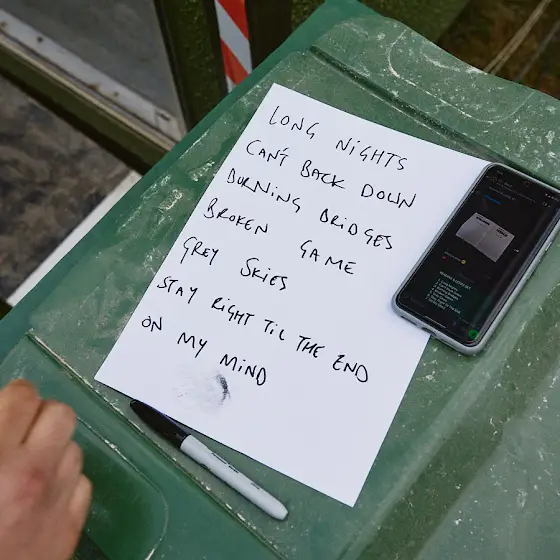 LONG NIGHTS
CAN'T BACK DOWN
BURNING BRIDGES
BROKEN GAME
GREY SKIES
STAY RIGHT TIL THE END
ON MY MIND